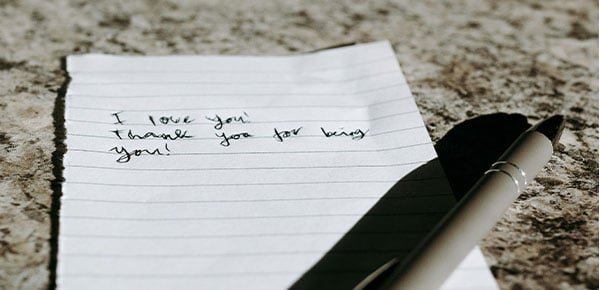 I love you!
Thank you for being
you!